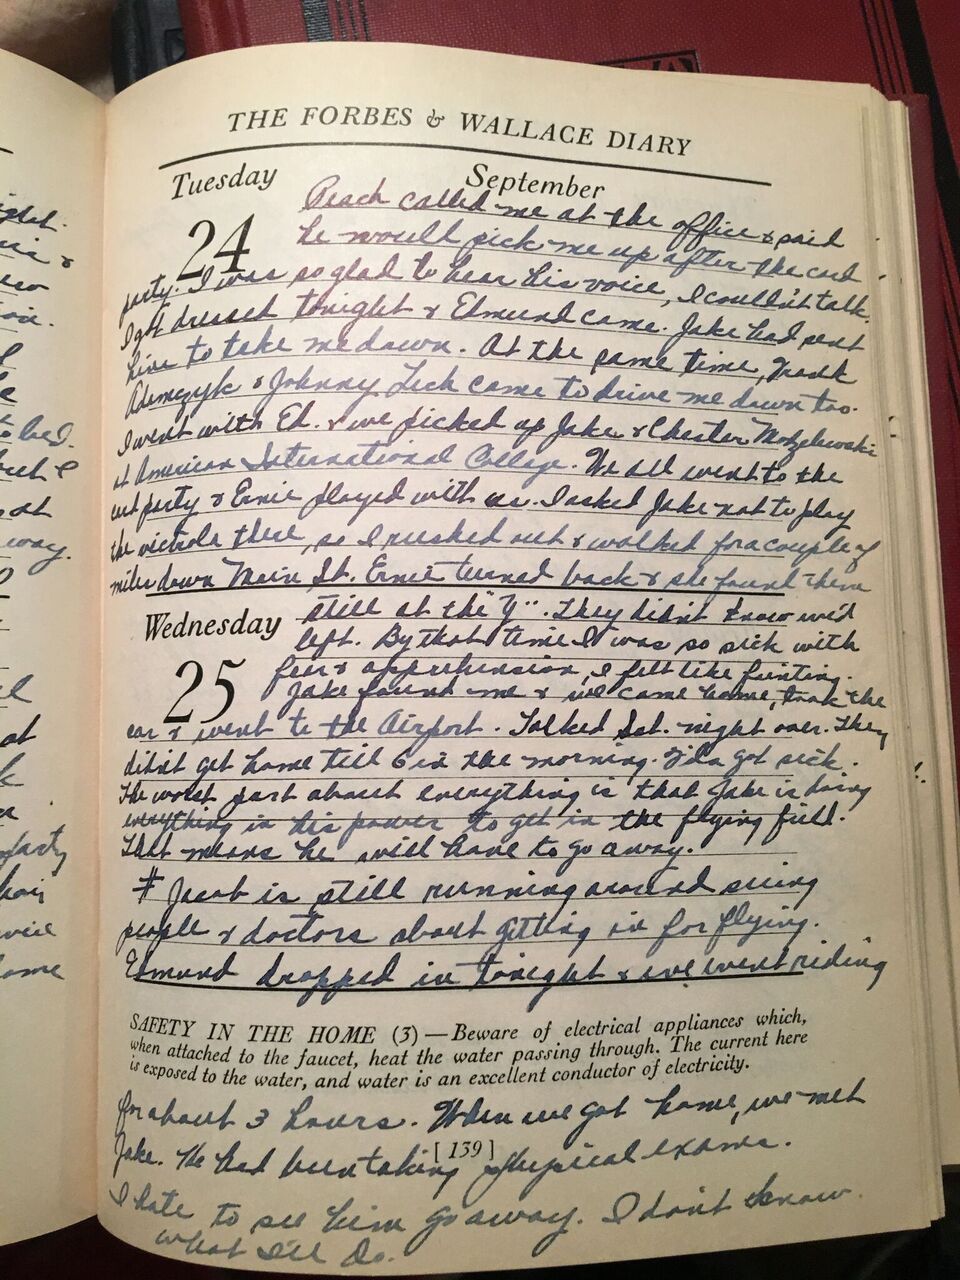 THE FORBES & WALLACE DIARY
Tuesday September
24
called me at the office & said
he would pick me up after the card
party. I was so glad to hear his voice, I couldn't talk.
I got dressed tonight & Edmund came. Jake had sent
him to take me down. At the same time,
Adamczyk & Johnny came to drive me down too.
I went with Ed. & we picked up Jake & Chester
at American International College. We all went to the
card party & Ernie played with us. I asked Jake not to play
the victrola there, so I rushed out & walked for a couple of
miles down Main St. Ernie turned back & she found them
Wednesday
25
still at the "Y". They didn't know we'd
left. By that time I was so sick with
fear & apprehension, I felt like fainting.
Jake found me & we came home, took the
car & went to the Airport. Talked Sat. night over. They
didn't get home till 6 in the morning. I'da got sick.
The worst part about everything is that Jake is doing
everything in his power to get in the flying field.
That means he will have to go away.
# Jacob is still running around seeing
people & doctors about getting in for flying.
Edmund dropped in tonight & we went riding
SAFETY IN THE HOME (3) — Beware of electrical appliances which,
when attached to the faucet, heat the water passing through. The current here
is exposed to the water, and water is an excellent conductor of electricity.
for about 3 hours. When we got home, we met
[ 139 ]
Jake. He had been taking physical exams.
I hate to see him go away. I don't know
what I'll do.